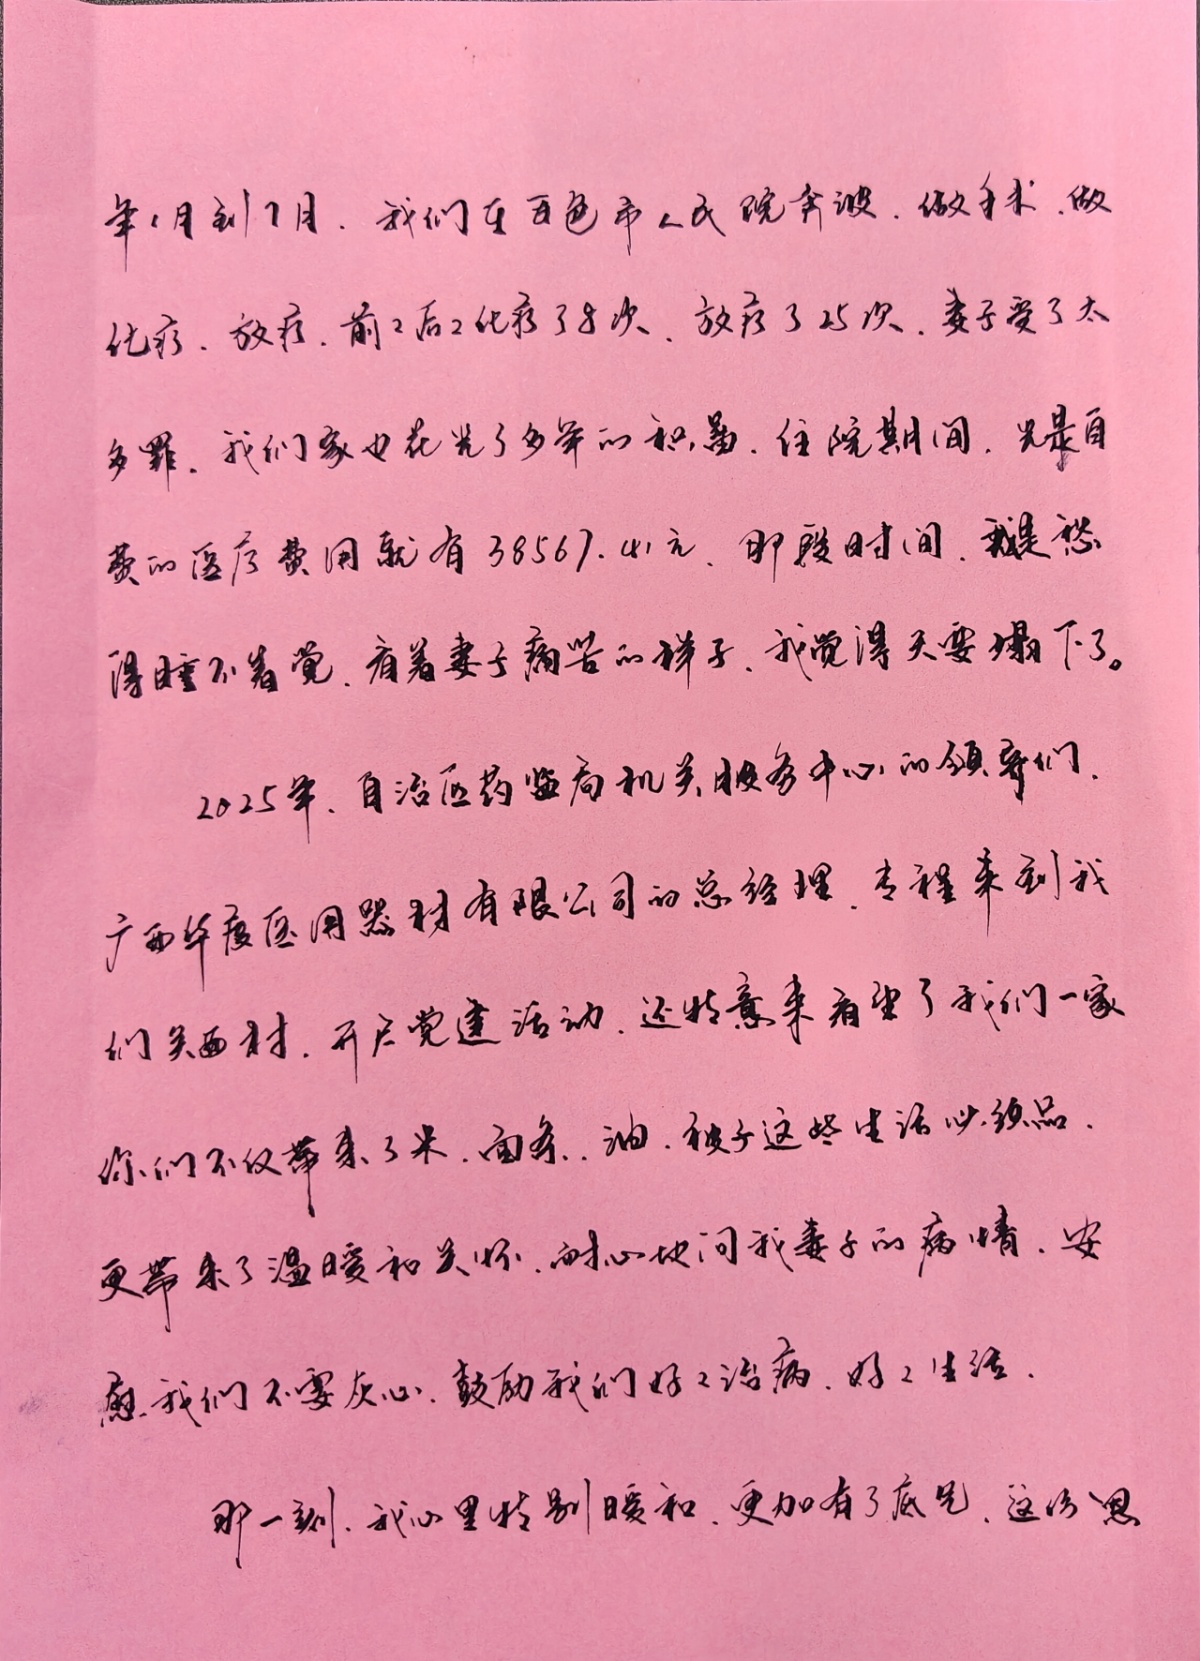 年1月到7月、我们在百色市人民院奔波、做手术、做
化疗、放疗、前々后々化疗了8次、放疗了25次、妻子受了太
多罪、我们家也花光了多年的积蓄、住院期间、光是自
费的医疗费用就有38567.41元、那段时间、我是愁
得睡不着觉、看着妻子病苦的样子、我觉得天要塌下了。
2025年、自治区药监局机关服务中心的领导们、
广西华度医用器材有限公司的总经理、专程来到我
们关西村、开户党建活动、还特意来看望了我们一家
你们不仅带来了米、面条、油、被子这些生活必须品、
更带来了温暖和关怀、耐心地问我妻子的病情、安
慰我们不要灰心、鼓励我们好々治病、好々生活、
那一刻、我心里特别暖和、更加有了底气、这份恩